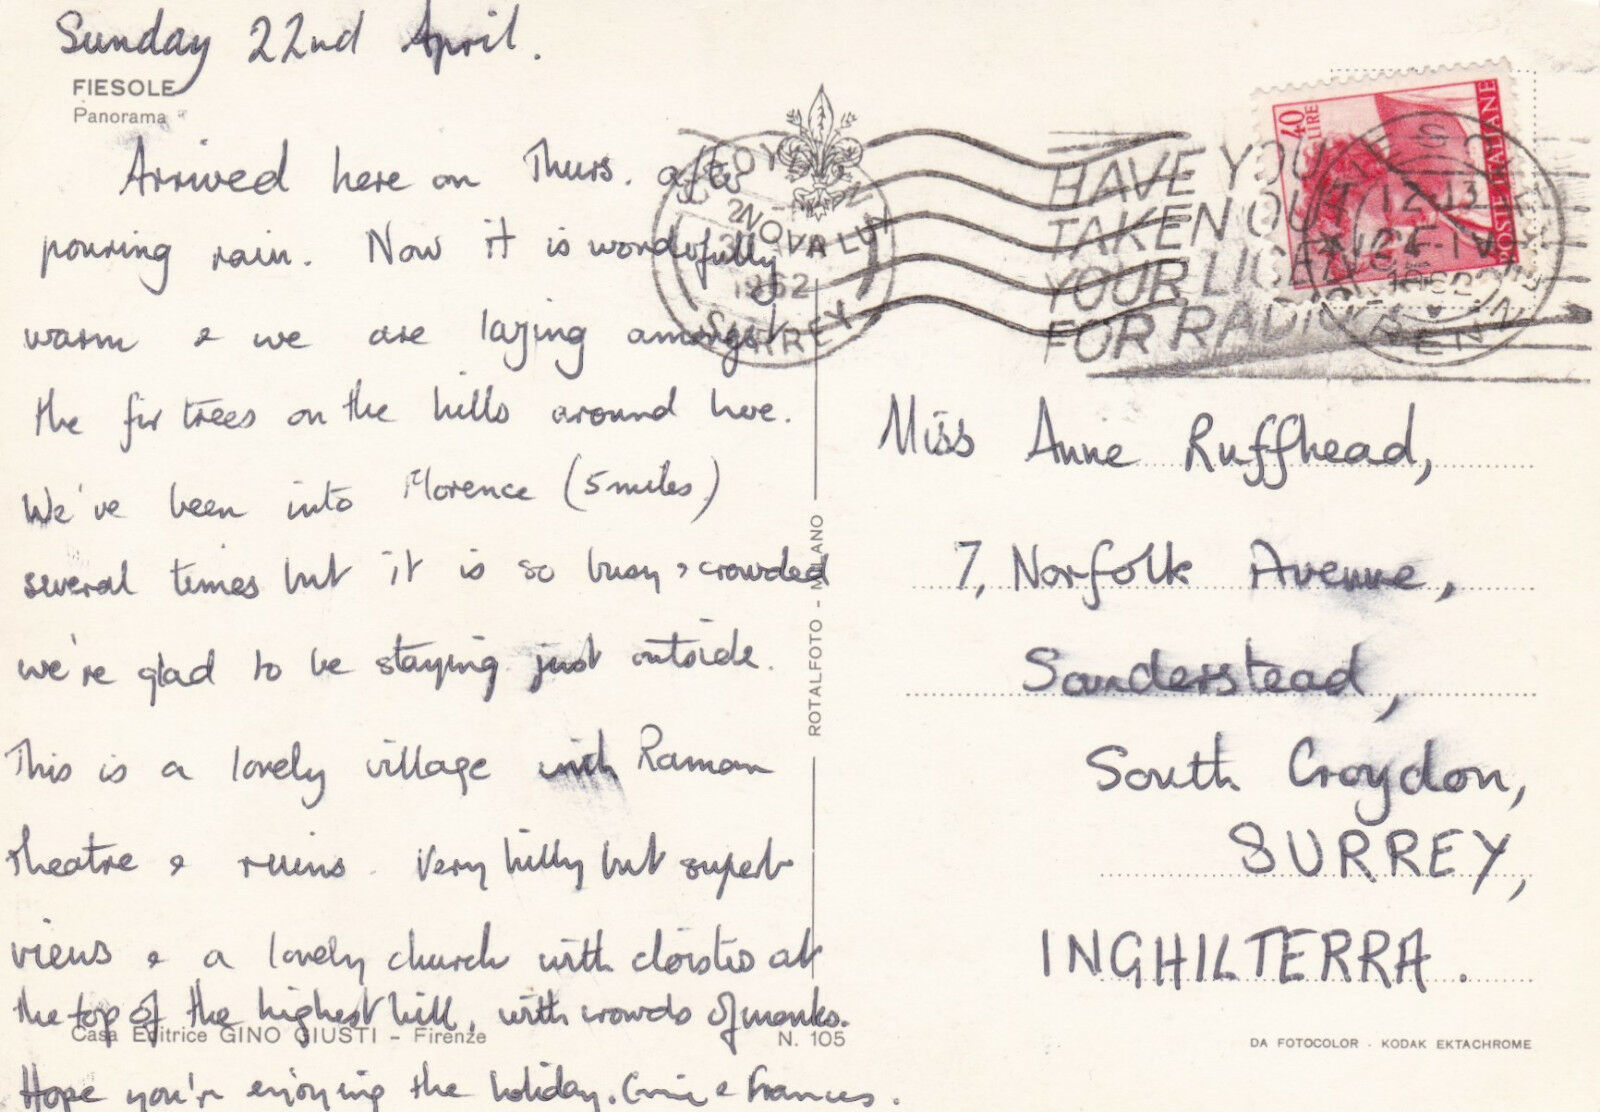 Sunday 22nd April.
FIESOLE
Panorama
Arrived here on Thurs. after
pouring rain. Now it is wonderfully
warm & we are laying amongst
the fir trees on the hills around here.
We've been into Florence (5 miles)
several times but it is so busy & crowded
we're glad to be staying just outside.
This is a lovely village with Roman
theatre & ruins. Very hilly but superb
views & a lovely church with cloisters at
the top of the highest hill, with crowds of monks.
Casa Editrice GINO GIUSTI - Firenze
N. 105
Hope you're enjoying the holiday. & Frances.
ROTALFOTO - MILANO
NOVA LUX
1962
SURREY
HAVE YOU
TAKEN OUT
YOUR LICENCE
FOR RADIO
40
LIRE
POSTE ITALIANE
1962
Miss Anne Ruffhead,
7, Norfolk Avenue,
Sanderstead,
South Croydon,
SURREY,
INGHILTERRA.
DA FOTOCOLOR - KODAK EKTACHROME